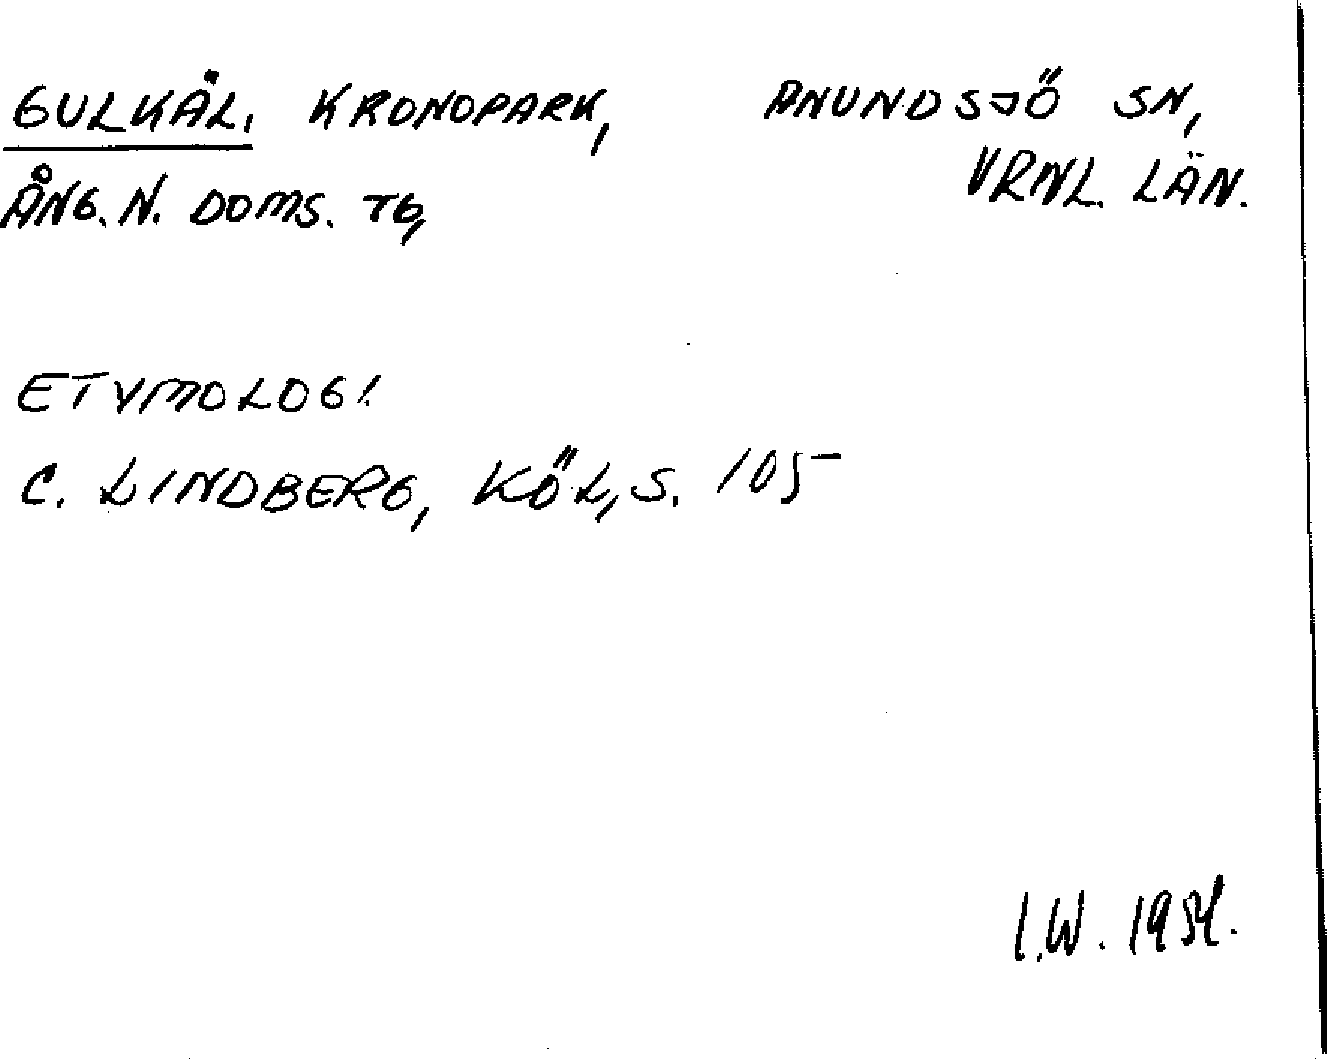 GULKÅL, KRONOPARK, ANUNDSJÖ SN,
ÅNG. N. DOMS. TG, VRNL. LÄN.
ETYMOLOGI
C. LINDBERG, KÖL, S. 105
I.W. 1954.